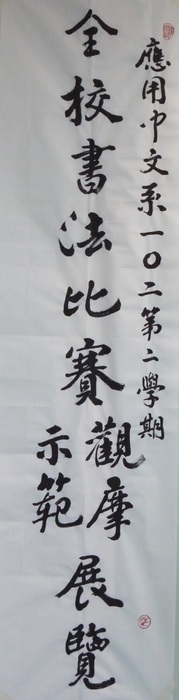 應用中文系一〇二第二學期
全校書法比賽
觀摩
示範
展覽